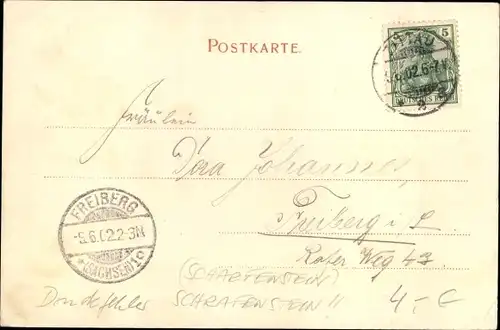 POSTKARTE.
5
ZITTAU
5.6.02.6-7N
2
Fräulein
Dora Johannes,
Freiberg i. S.
Roter Weg 47
FREIBERG
-5.6.02.2-3N
* (SACHSEN) 1c
(SCHARFENSTEIN)
Druckfehler SCHRAFENSTEIN !!
4,- €